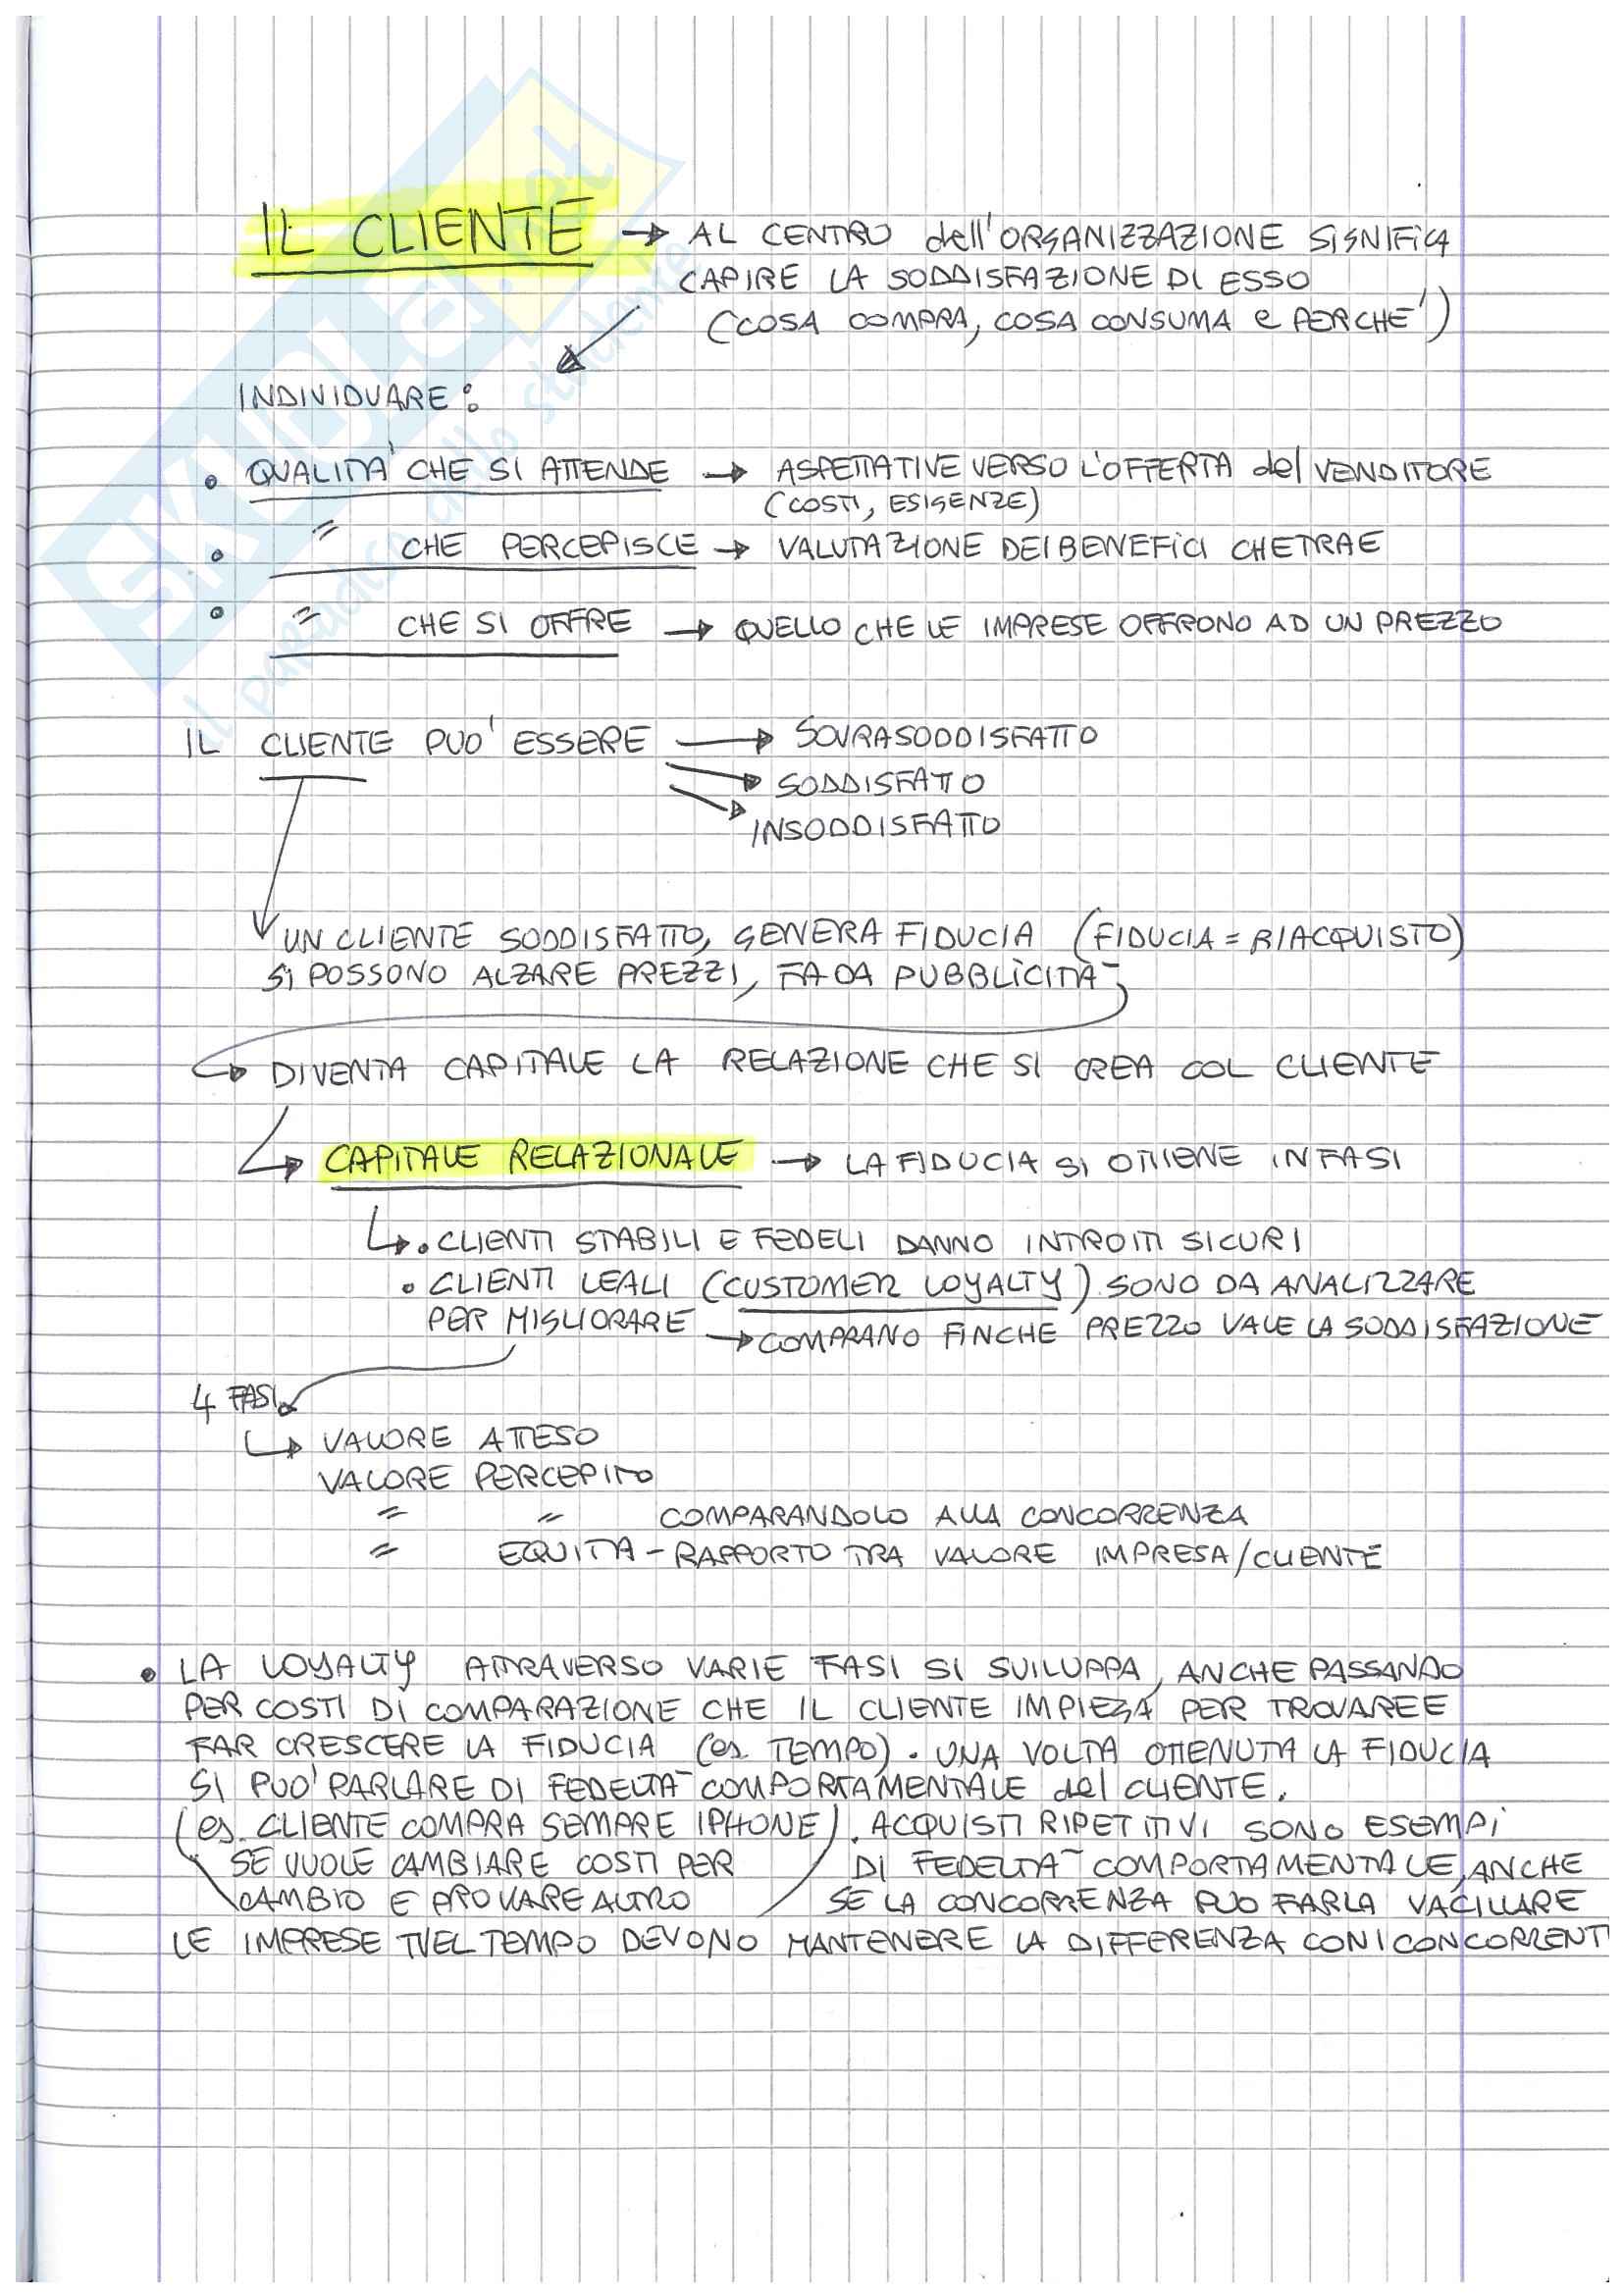 IL CLIENTE → AL CENTRO dell'ORGANIZZAZIONE SIGNIFICA
CAPIRE LA SODDISFAZIONE DI ESSO
(COSA COMPRA, COSA CONSUMA e PERCHE')
INDIVIDUARE:
• QUALITA' CHE SI ATTENDE → ASPETTATIVE VERSO L'OFFERTA del VENDITORE
(COSTI, ESIGENZE)
• " CHE PERCEPISCE → VALUTAZIONE DEI BENEFICI CHE TRAE
• " CHE SI OFFRE → QUELLO CHE LE IMPRESE OFFRONO AD UN PREZZO
IL CLIENTE PUO' ESSERE → SOVRASODDISFATTO
→ SODDISFATTO
→ INSODDISFATTO
UN CLIENTE SODDISFATTO, GENERA FIDUCIA (FIDUCIA = RIACQUISTO)
SI POSSONO ALZARE PREZZI, FA DA PUBBLICITA'
→ DIVENTA CAPITALE LA RELAZIONE CHE SI CREA COL CLIENTE
→ CAPITALE RELAZIONALE → LA FIDUCIA SI OTTIENE IN FASI
→ • CLIENTI STABILI E FEDELI DANNO INTROITI SICURI
• CLIENTI LEALI (CUSTOMER LOYALTY) SONO DA ANALIZZARE
PER MIGLIORARE → COMPRANO FINCHE PREZZO VALE LA SODDISFAZIONE
4 FASI
→ VALORE ATTESO
VALORE PERCEPITO
" " COMPARANDOLO ALLA CONCORRENZA
" EQUITA - RAPPORTO TRA VALORE IMPRESA/CLIENTE
• LA LOYALTY ATTRAVERSO VARIE FASI SI SVILUPPA, ANCHE PASSANDO
PER COSTI DI COMPARAZIONE CHE IL CLIENTE IMPIEGA PER TROVARE E
FAR CRESCERE LA FIDUCIA (es. TEMPO). UNA VOLTA OTTENUTA LA FIDUCIA
SI PUO' PARLARE DI FEDELTA' COMPORTAMENTALE del CLIENTE.
(es. CLIENTE COMPRA SEMPRE IPHONE). ACQUISTI RIPETITIVI SONO ESEMPI
SE VUOLE CAMBIARE COSTI PER DI FEDELTA' COMPORTAMENTALE, ANCHE
CAMBIO E PROVARE ALTRO SE LA CONCORRENZA PUO FARLA VACILLARE
LE IMPRESE NEL TEMPO DEVONO MANTENERE LA DIFFERENZA CON I CONCORRENTI
SKUOLa.net
il paradiso dello studente